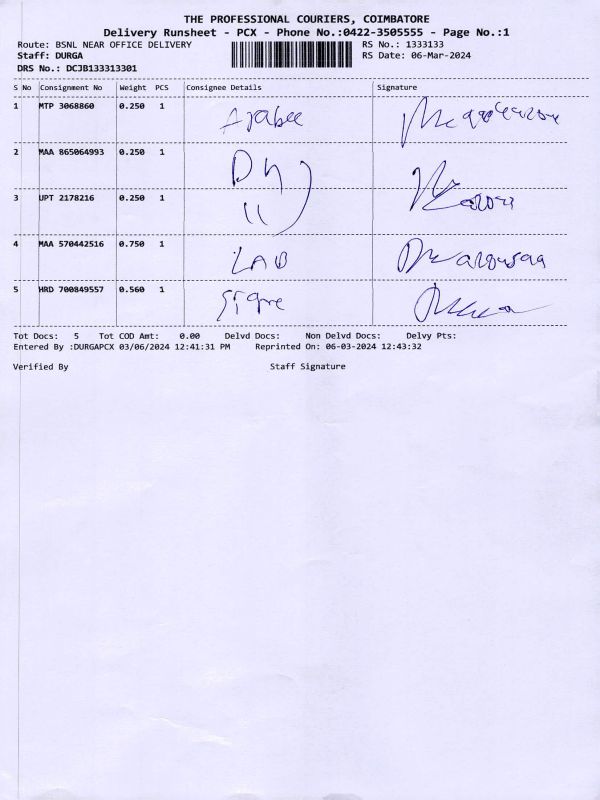 THE PROFESSIONAL COURIERS, COIMBATORE
Delivery Runsheet - PCX - Phone No.:0422-3505555 - Page No.:1
Route: BSNL NEAR OFFICE DELIVERY RS No.: 1333133
Staff: DURGA RS Date: 06-Mar-2024
DRS No.: DCJB133313301
S No Consignment No Weight PCS Consignee Details Signature
1 MTP 3068860 0.250 1
2 MAA 865064993 0.250 1 DH
3 UPT 2178216 0.250 1 11
4 MAA 570442516 0.750 1 LAB
5 HRD 700849557 0.560 1
Tot Docs: 5 Tot COD Amt: 0.00 Delvd Docs: Non Delvd Docs: Delvy Pts:
Entered By :DURGAPCX 03/06/2024 12:41:31 PM Reprinted On: 06-03-2024 12:43:32
Verified By Staff Signature